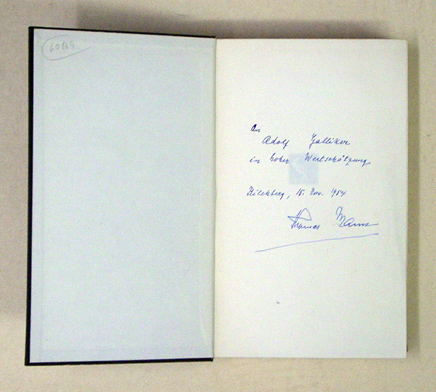 An
Adolf Galliker
in hoher Wertschätzung
Kilchberg, 15. Nov. 1954
Thomas Mann